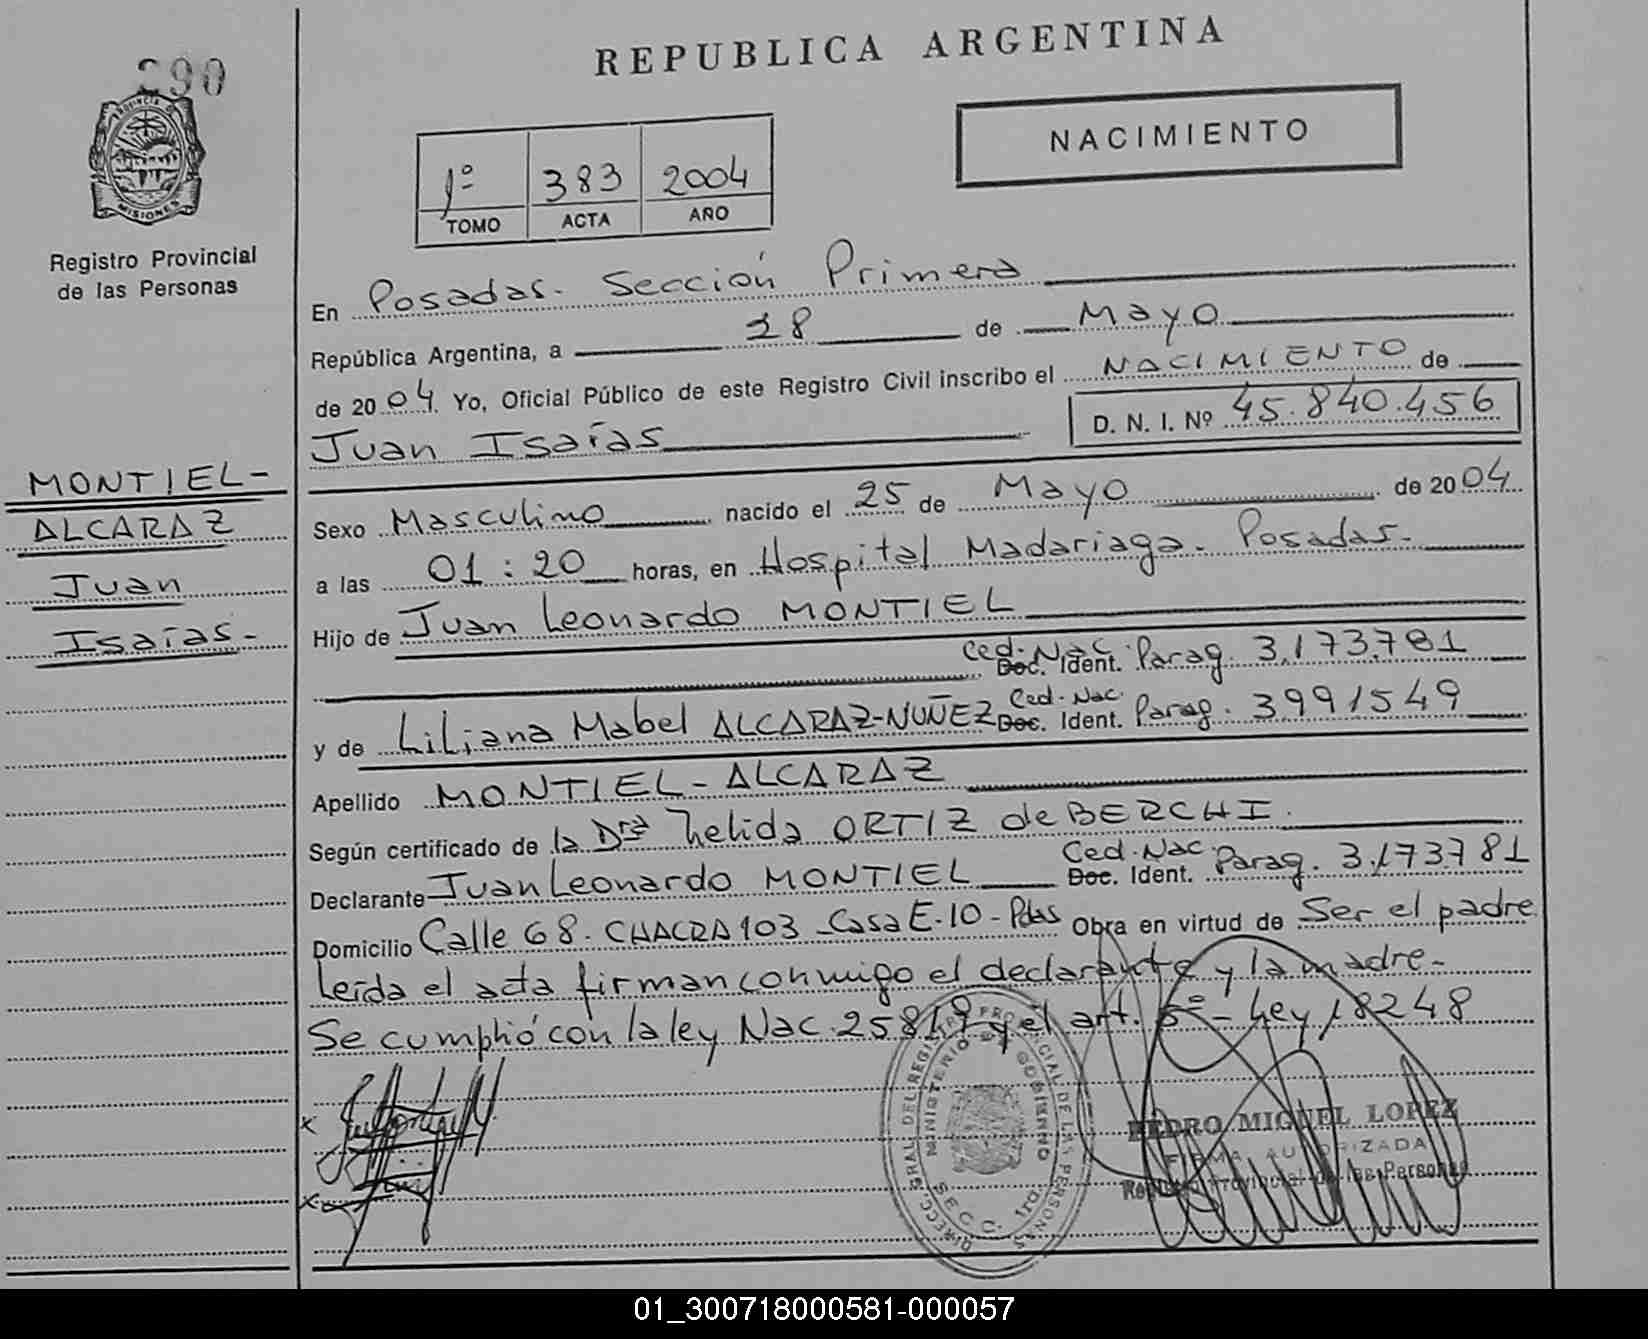 290
PROVINCIA DE
MISIONES
Registro Provincial
de las Personas
MONTIEL-
ALCARAZ
Juan
Isaías-
REPUBLICA ARGENTINA
NACIMIENTO
1º 383 2004
TOMO ACTA AÑO
En Posadas. Sección Primera
República Argentina, a 28 de Mayo
de 2004. Yo, Oficial Público de este Registro Civil inscribo el NACIMIENTO de
Juan Isaías D. N. I. Nº 45.840.456
Sexo Masculino nacido el 25 de Mayo de 2004
a las 01:20 horas, en Hospital Madariaga. Posadas.
Hijo de Juan Leonardo MONTIEL
Ced. Nac. Doc. Ident. Parag. 3.173.781
y de Liliana Mabel ALCARAZ-NUÑEZ Ced. Nac. Doc. Ident. Parag. 3991549
Apellido MONTIEL-ALCARAZ
Según certificado de la Dra Nelida ORTIZ de BERCHI.
Declarante Juan Leonardo MONTIEL Ced. Nac. Doc. Ident. Parag. 3.173781
Domicilio Calle 68. CHACRA 103 Casa E-10-Pdas Obra en virtud de Ser el padre
Leída el acta firman conmigo el declarante y la madre-
Se cumplió con la ley Nac. 25819 y el art. 5º- Ley 18248
DIRECC. GRAL. DEL REGISTRO PROVINCIAL DE LAS PERSONAS
MINISTERIO DE GOBIERNO
SECC. 1
PEDRO MIGUEL LOPEZ
FIRMA AUTORIZADA
Registro Provincial de las Personas
01_300718000581-000057